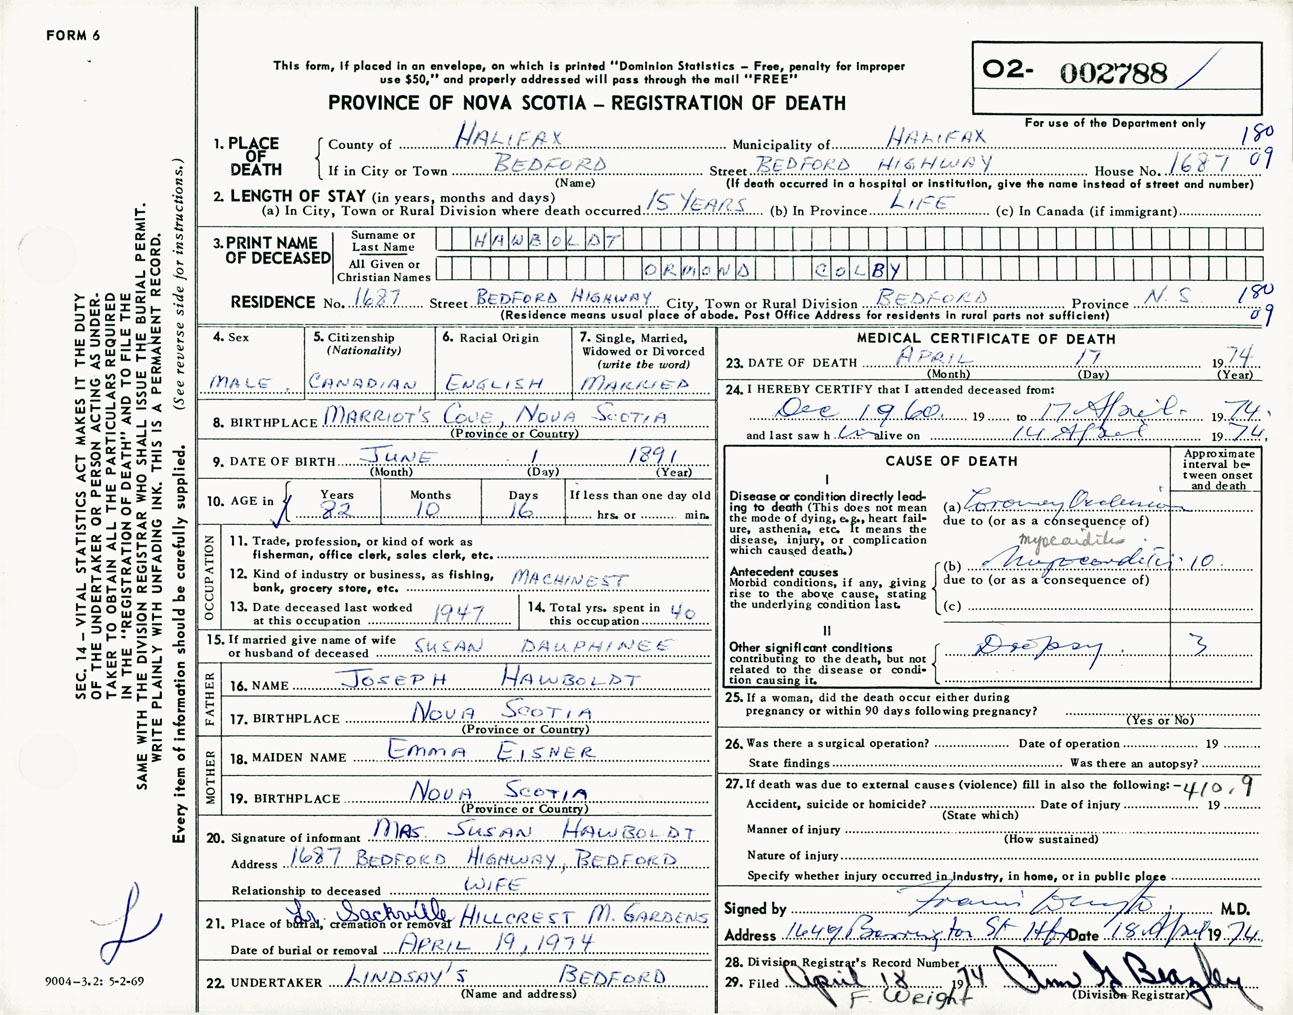 FORM 6
This form, if placed in an envelope, on which is printed "Dominion Statistics – Free, penalty for improper
use $50," and properly addressed will pass through the mail "FREE"
PROVINCE OF NOVA SCOTIA – REGISTRATION OF DEATH
O2- 002788
For use of the Department only
180
09
1. PLACE OF DEATH
County of HALIFAX Municipality of HALIFAX
If in City or Town BEDFORD Street BEDFORD HIGHWAY House No. 1687
(Name) (If death occurred in a hospital or institution, give the name instead of street and number)
2. LENGTH OF STAY (in years, months and days)
(a) In City, Town or Rural Division where death occurred 15 YEARS (b) In Province LIFE (c) In Canada (if immigrant)
3. PRINT NAME OF DECEASED
Surname or Last Name HAWBOLDT
All Given or Christian Names ORMOND COLBY
RESIDENCE No. 1687 Street BEDFORD HIGHWAY City, Town or Rural Division BEDFORD Province N.S. 180
09
(Residence means usual place of abode. Post Office Address for residents in rural parts not sufficient)
4. Sex
MALE
5. Citizenship
(Nationality)
CANADIAN
6. Racial Origin
ENGLISH
7. Single, Married,
Widowed or Divorced
(write the word)
MARRIED
8. BIRTHPLACE MARRIOT'S COVE, NOVA SCOTIA
(Province or Country)
9. DATE OF BIRTH JUNE 1 1891
(Month) (Day) (Year)
10. AGE in
Years Months Days If less than one day old
82 10 16 hrs. or min.
OCCUPATION
11. Trade, profession, or kind of work as
fisherman, office clerk, sales clerk, etc.
12. Kind of industry or business, as fishing, MACHINEST
bank, grocery store, etc.
13. Date deceased last worked
at this occupation 1947
14. Total yrs. spent in
this occupation 40
15. If married give name of wife
or husband of deceased SUSAN DAUPHINEE
FATHER
16. NAME JOSEPH HAWBOLDT
17. BIRTHPLACE NOVA SCOTIA
(Province or Country)
MOTHER
18. MAIDEN NAME EMMA EISNER
19. BIRTHPLACE NOVA SCOTIA
(Province or Country)
20. Signature of informant MRS. SUSAN HAWBOLDT
Address 1687 BEDFORD HIGHWAY, BEDFORD
Relationship to deceased WIFE
21. Place of burial, cremation or removal Lr. Sackville HILLCREST M. GARDENS
Date of burial or removal APRIL 19, 1974
22. UNDERTAKER LINDSAY'S BEDFORD
(Name and address)
MEDICAL CERTIFICATE OF DEATH
23. DATE OF DEATH APRIL 17 1974
(Month) (Day) (Year)
24. I HEREBY CERTIFY that I attended deceased from:
Dec 1960 19 to 17 April 1974.
and last saw him alive on 14 April 1974.
CAUSE OF DEATH
Approximate
interval be-
tween onset
and death
I
Disease or condition directly lead-
ing to death (This does not mean
the mode of dying, e.g., heart fail-
ure, asthenia, etc. It means the
disease, injury, or complication
which caused death.)
(a) Coronary Occlusion
due to (or as a consequence of)
myocarditis
Antecedent causes
Morbid conditions, if any, giving
rise to the above cause, stating
the underlying condition last.
(b) Myocarditis 10
due to (or as a consequence of)
(c)
II
Other significant conditions
contributing to the death, but not
related to the disease or condi-
tion causing it.
Dropsy. 3
25. If a woman, did the death occur either during
pregnancy or within 90 days following pregnancy?
(Yes or No)
26. Was there a surgical operation? Date of operation 19
State findings Was there an autopsy?
27. If death was due to external causes (violence) fill in also the following: – 410.9
Accident, suicide or homicide? Date of injury 19
(State which)
Manner of injury
(How sustained)
Nature of injury
Specify whether injury occurred in industry, in home, or in public place
Signed by M.D.
Address 1649 Barrington St Hfx Date 18 April 1974.
28. Division Registrar's Record Number
29. Filed April 18 1974
(Division Registrar)
F. Wright
SEC. 14 – VITAL STATISTICS ACT MAKES IT THE DUTY
OF THE UNDERTAKER OR PERSON ACTING AS UNDER-
TAKER TO OBTAIN ALL THE PARTICULARS REQUIRED
IN THE "REGISTRATION OF DEATH" AND TO FILE THE
SAME WITH THE DIVISION REGISTRAR WHO SHALL ISSUE THE BURIAL PERMIT.
WRITE PLAINLY WITH UNFADING INK. THIS IS A PERMANENT RECORD.
Every item of information should be carefully supplied. (See reverse side for instructions.)
9004–3.2: 5-2-69